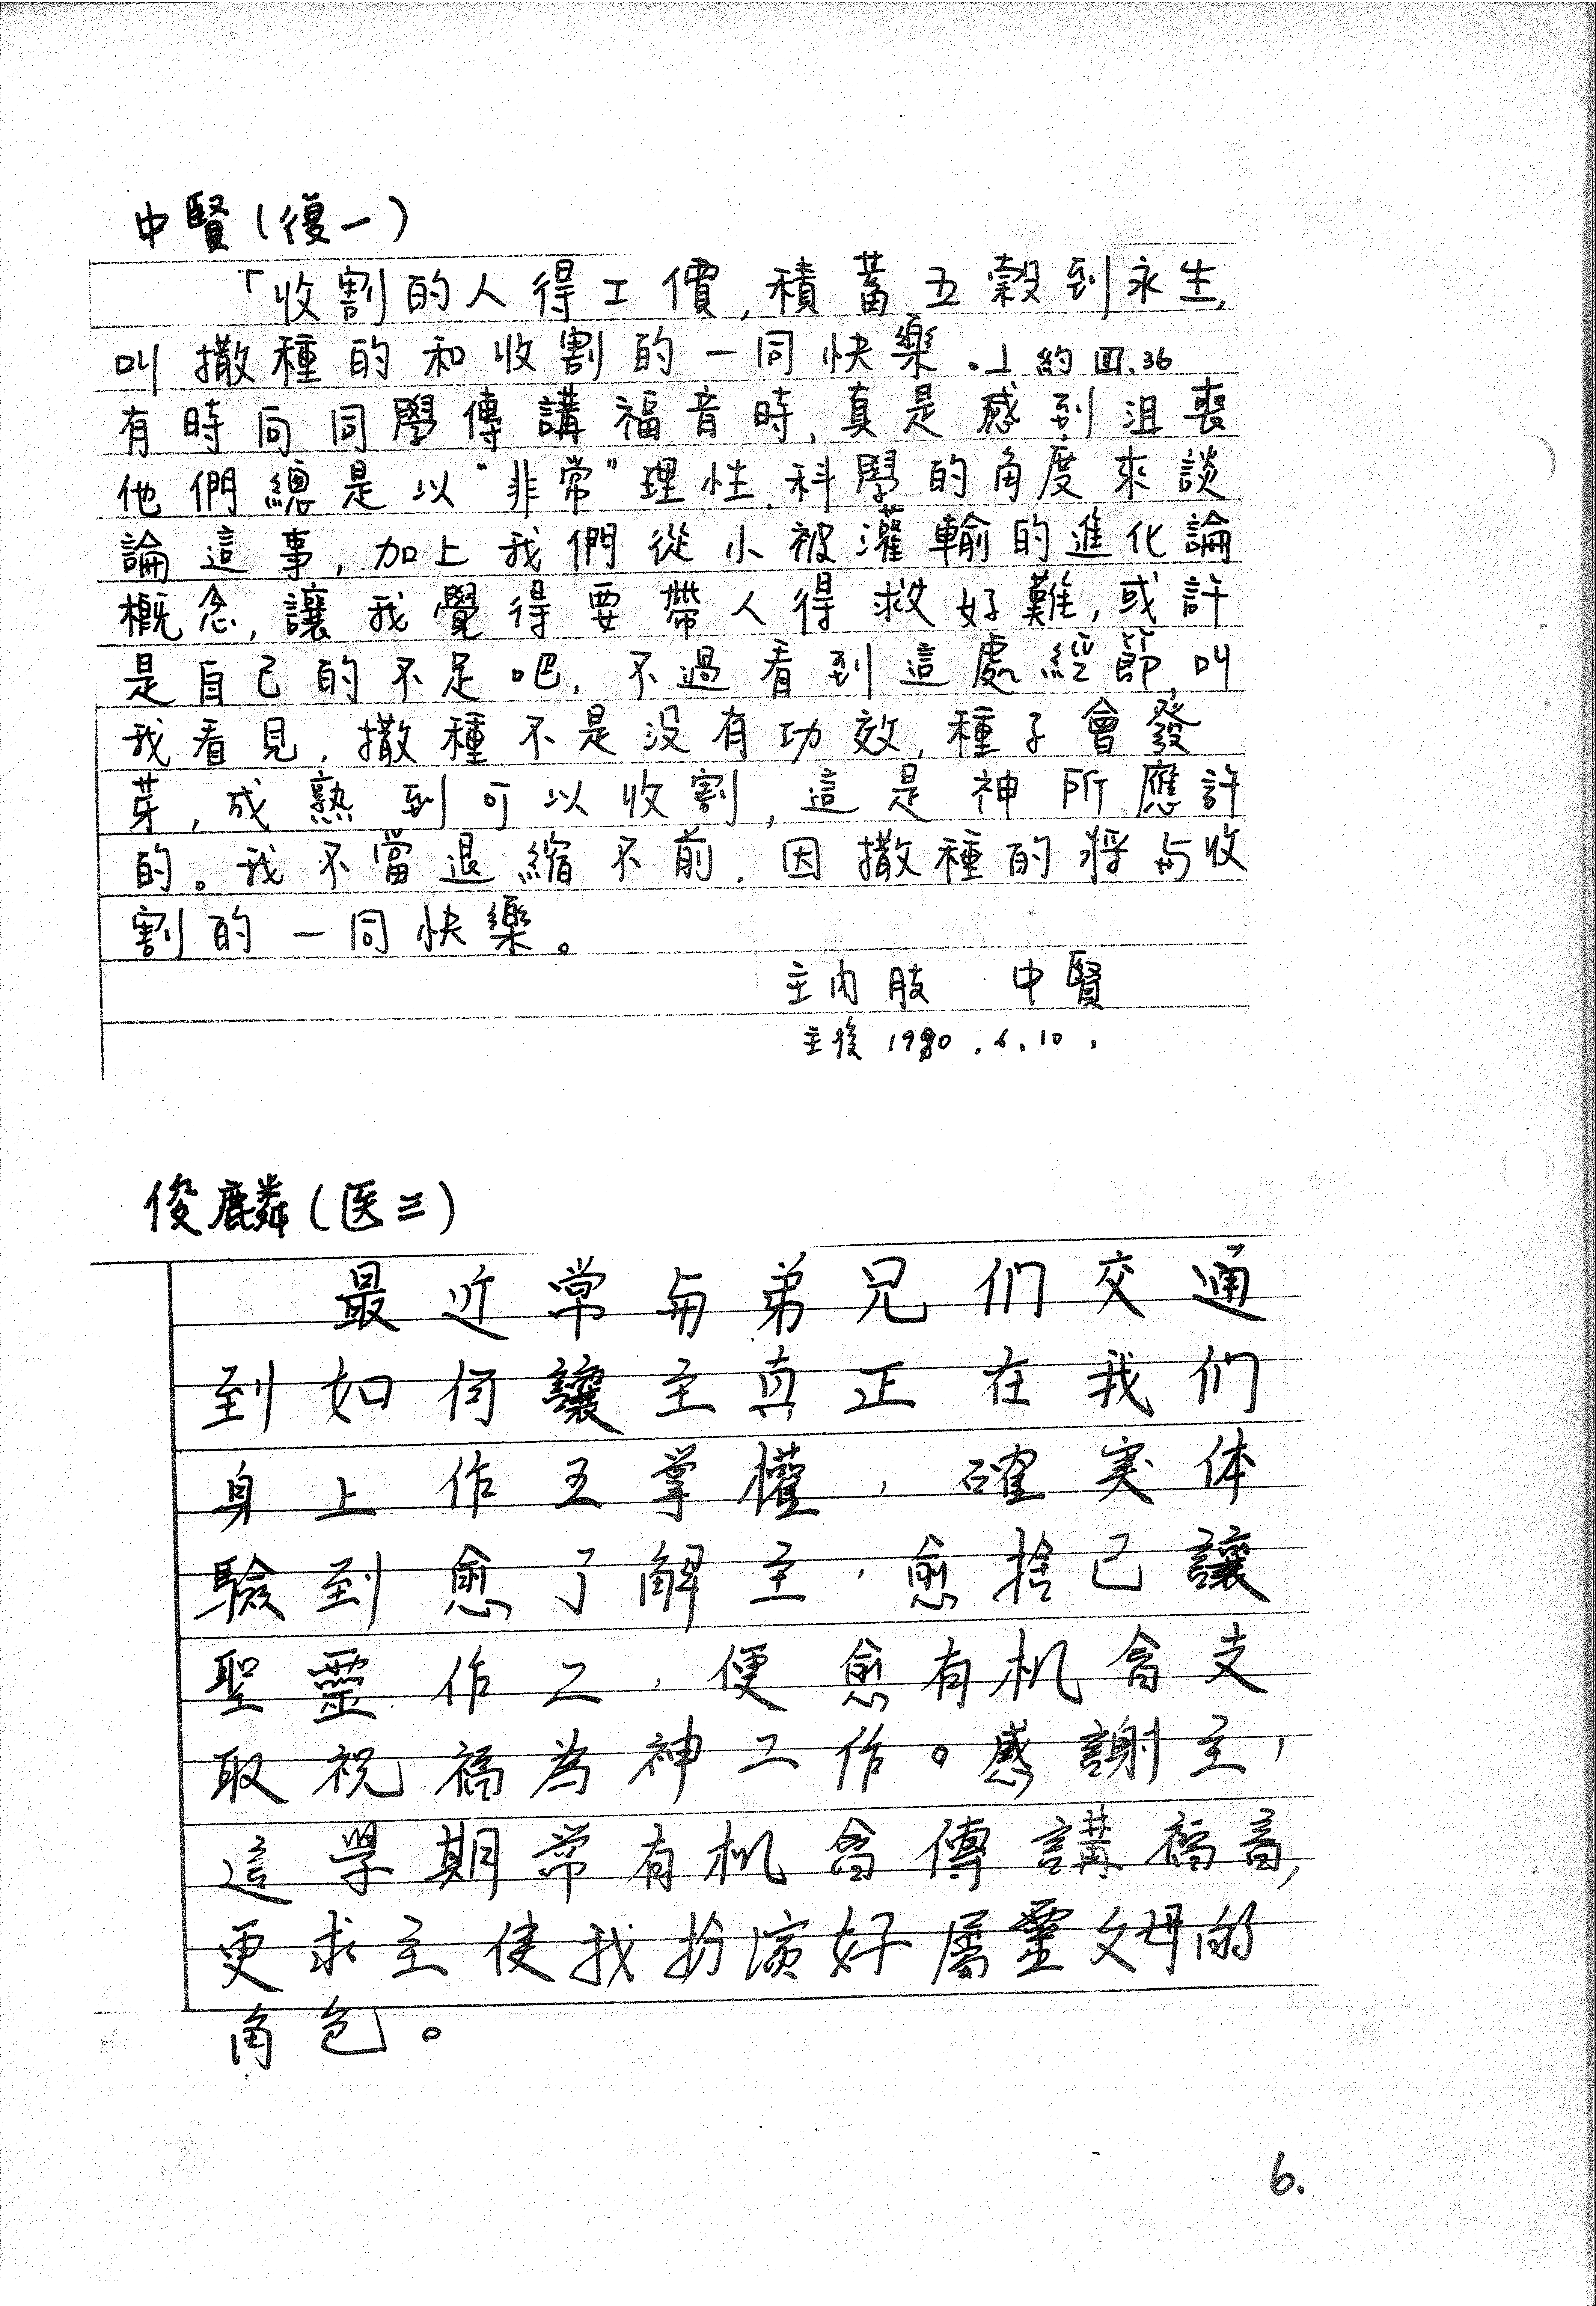 中賢(復一)
「收割的人得工價,積蓄五穀到永生,
叫撒種的和收割的一同快樂.」約四.36
有時向同學傳講福音時,真是感到沮喪
他們總是以"非常"理性.科學的角度來談
論這事,加上我們從小被灌輸的進化論
概念,讓我覺得要帶人得救好難,或許
是自己的不足吧,不過看到這處經節,叫
我看見,撒種不是沒有功效,種子會發
芽,成熟到可以收割,這是神所應許
的。我不當退縮不前.因撒種的將与收
割的一同快樂。
主內肢 中賢
主後 1990.6.10.
俊麟(医三)
最近常与弟兄们交通
到如何讓主真正在我们
身上作王掌權,確实体
驗到愈了解主,愈捨己讓
聖靈作工,便愈有机會支
取祝福為神工作。感謝主,
這學期常有机會傳講福音,
更求主使我扮演好屬靈父母的
角色。
6.